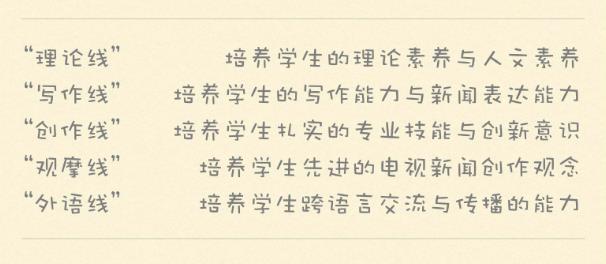 “理论线” 培养学生的理论素养与人文素养
“写作线” 培养学生的写作能力与新闻表达能力
“创作线” 培养学生扎实的专业技能与创新意识
“观摩线” 培养学生先进的电视新闻创作观念
“外语线” 培养学生跨语言交流与传播的能力